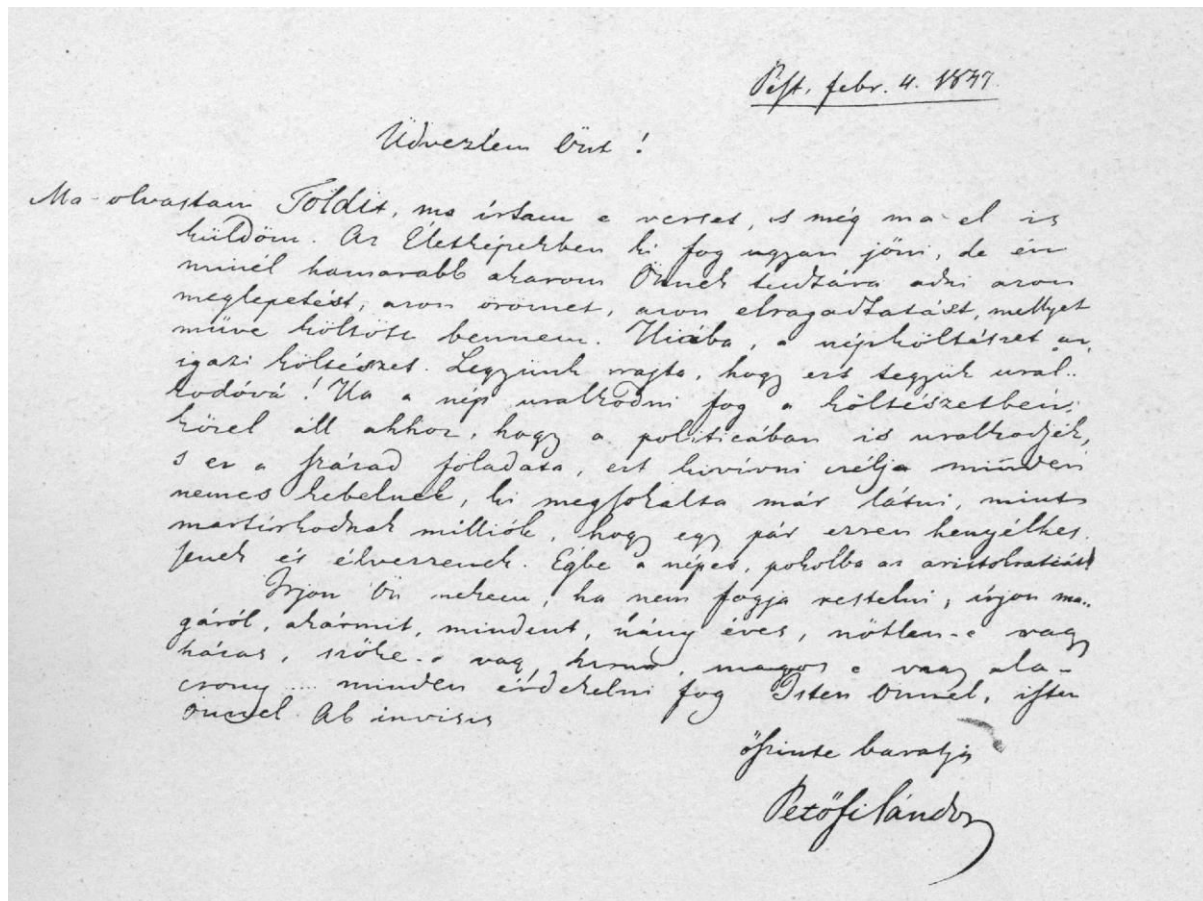 Pest, febr. 4. 1847.
Üdvezlem Önt!
Ma olvastam Toldit, ma írtam e verset, s még ma el is
küldöm. Az Életképekben ki fog ugyan jőni, de én
minél hamarabb akarom Önnek tudtára adni azon
meglepetést, azon örömet, azon elragadtatást, mellyet
műve költött bennem. Hiába, a népköltészet az
igazi költészet. Legyünk rajta, hogy ezt tegyük ural-
kodóvá! Ha a nép uralkodni fog a költészetben,
közel áll ahhoz, hogy a politicában is uralkodjék,
s ez a század föladata, ezt kivívni czélja minden
nemes kebelnek, ki megsokalta már látni, mint
martírkodnak milliók, hogy egy pár ezren henyélhes-
senek és élvezzenek. Égbe a népet, pokolba az aristokratiát!
Irjon Ön nekem, ha nem fogja restelni, írjon ma-
gáról, akármit, mindent, hány éves, nőtlen-e vagy
házas, szőke-e vagy barna, magos-e vagy ala-
csony ... minden érdekelni fog Isten Önnel, isten
Önnel. Ab invisis
őszinte baratja
Petőfi Sándor